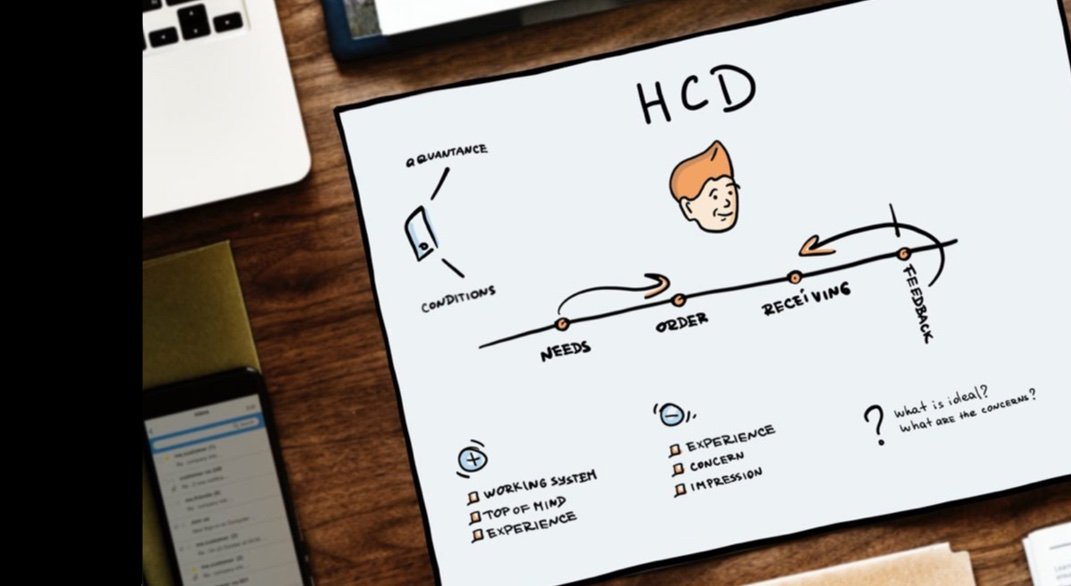 HCD
AQUANTANCE
CONDITIONS
NEEDS
ORDER
RECEIVING
FEEDBACK
+
WORKING SYSTEM
TOP OF MIND
EXPERIENCE
-
EXPERIENCE
CONCERN
IMPRESSION
?
what is ideal?
what ARE the CONCERNS?
Inbox